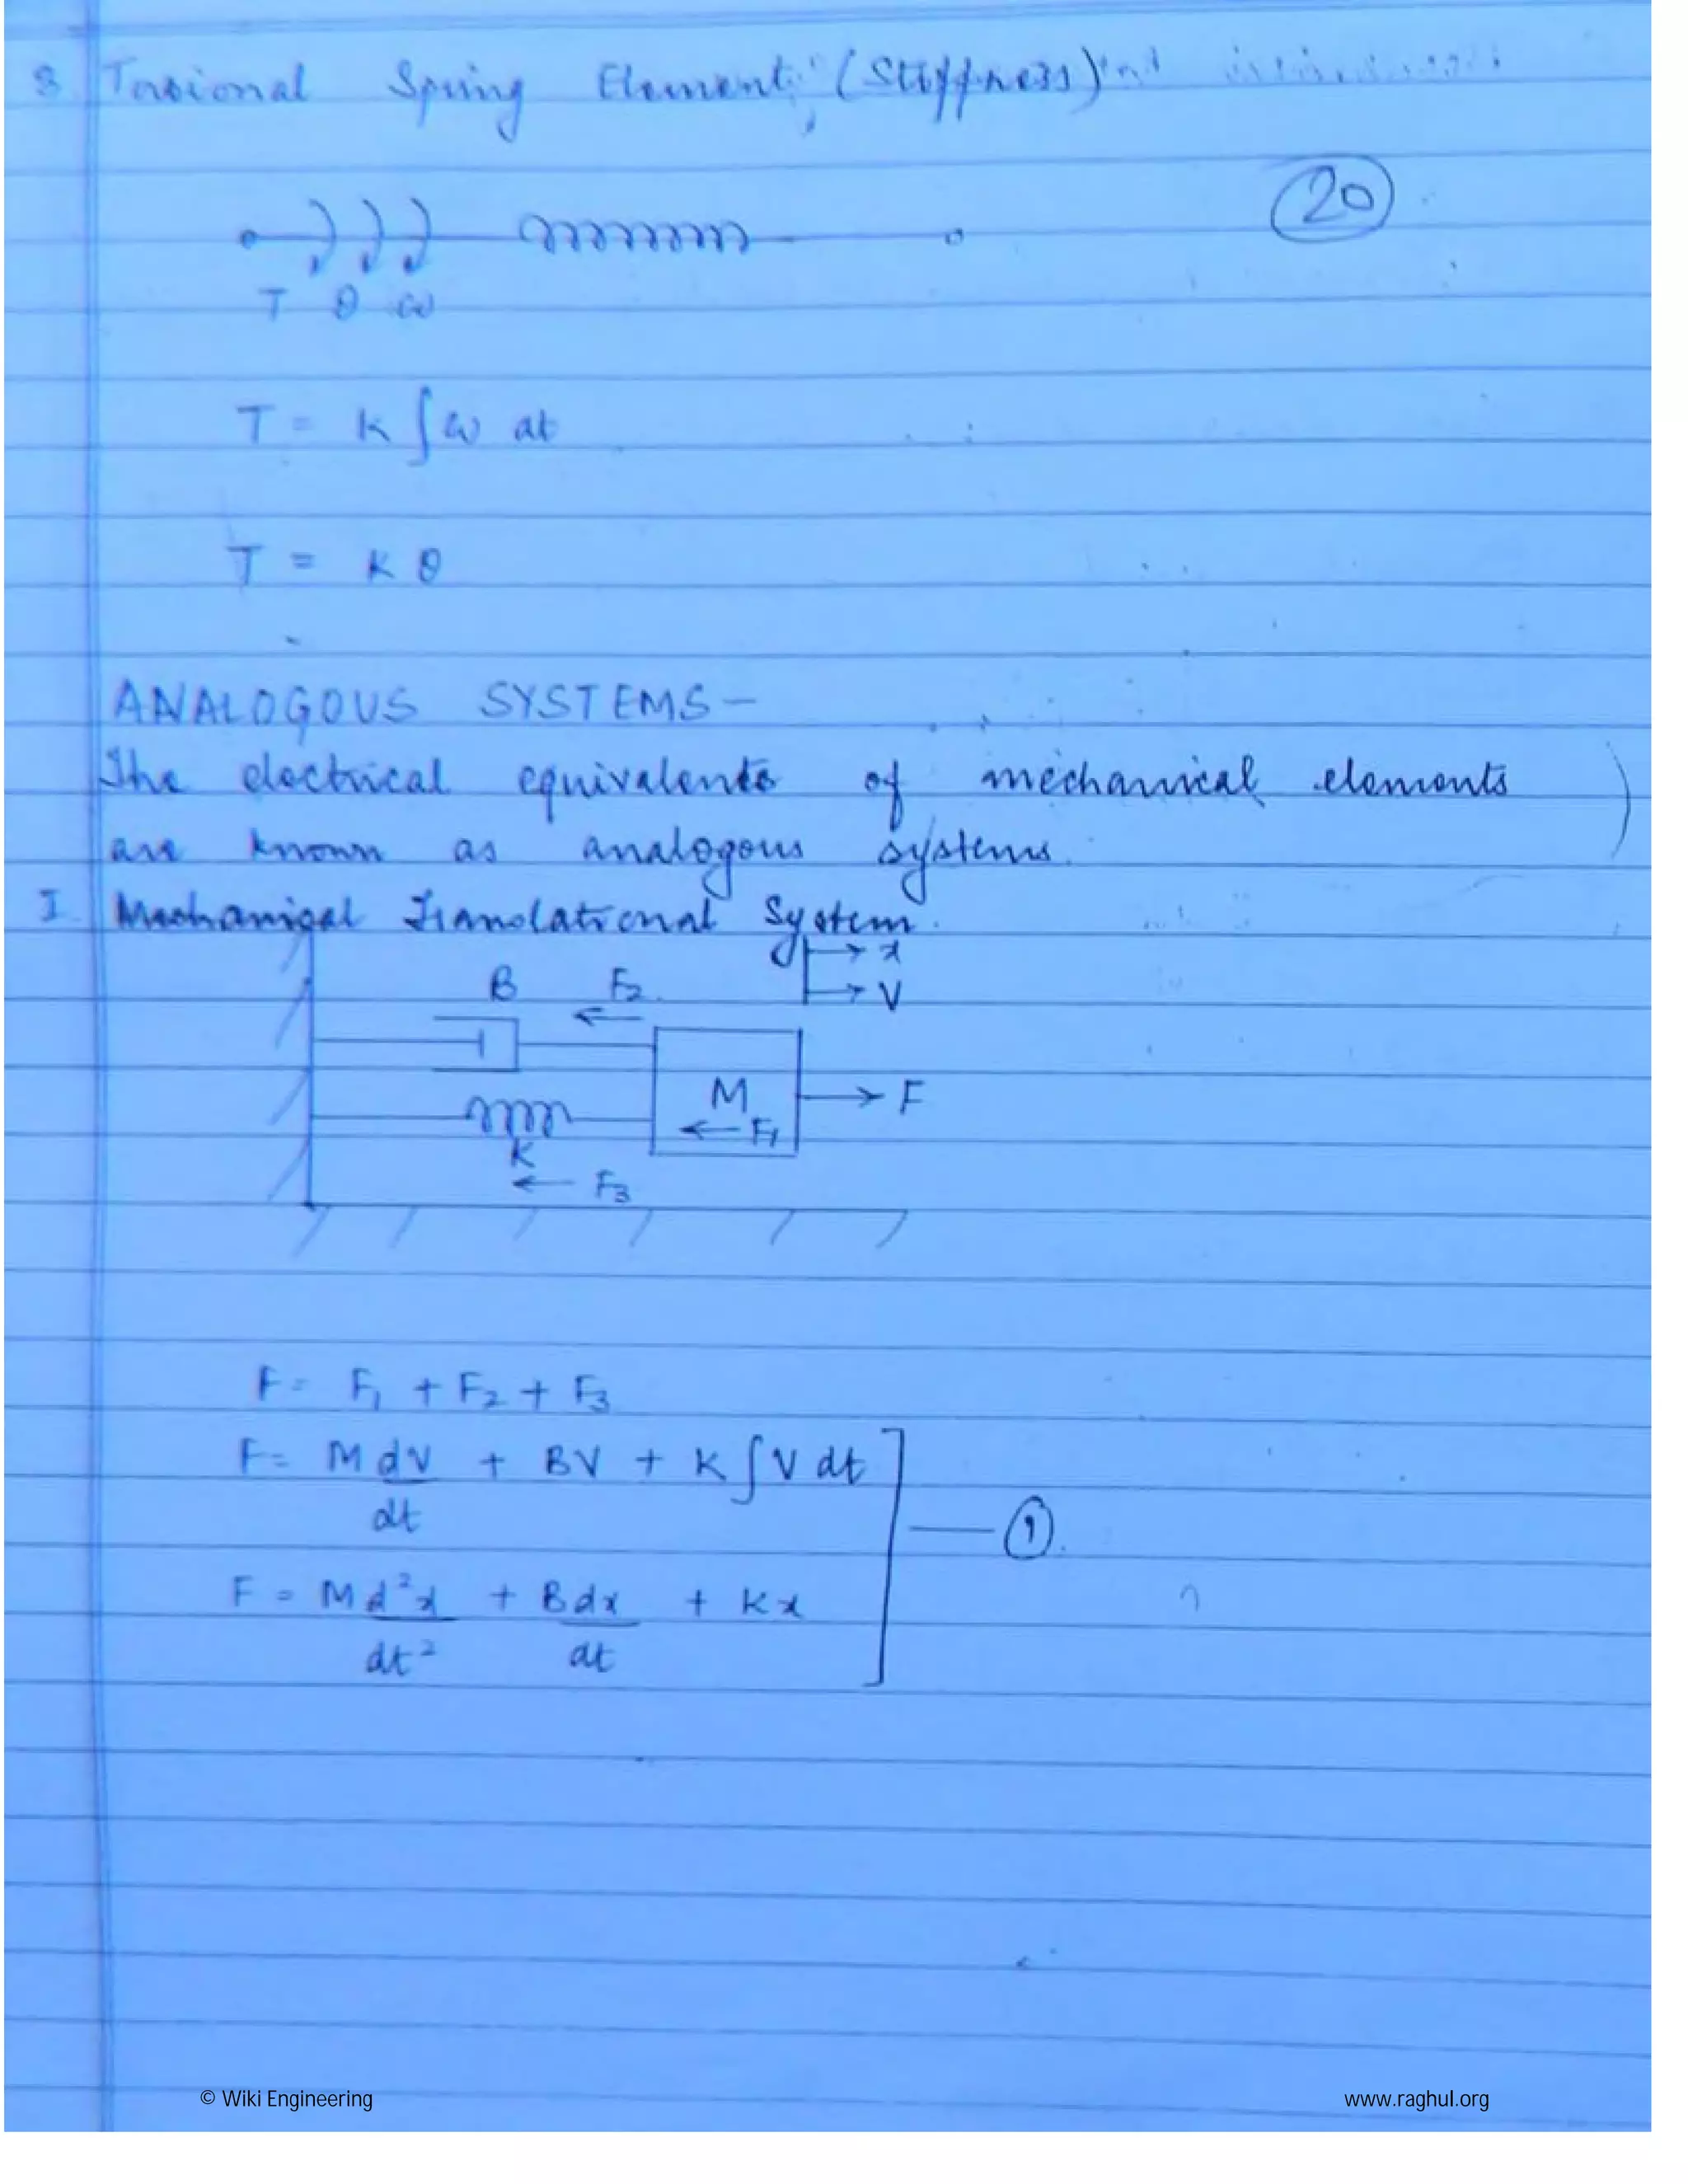 3 Torsional Spring Element, (Stiffness)
20
T θ ω
T = K ∫ω dt
T = K θ
ANALOGOUS SYSTEMS –
The electrical equivalents of mechanical elements
are known as analogous systems.
I Mechanical Translational System.
x
B F2 V
M F
F1
K
F3
F = F1 + F2 + F3
F = M dV/dt + BV + K ∫V dt
1
F = M d²x/dt² + B dx/dt + Kx
© Wiki Engineering www.raghul.org